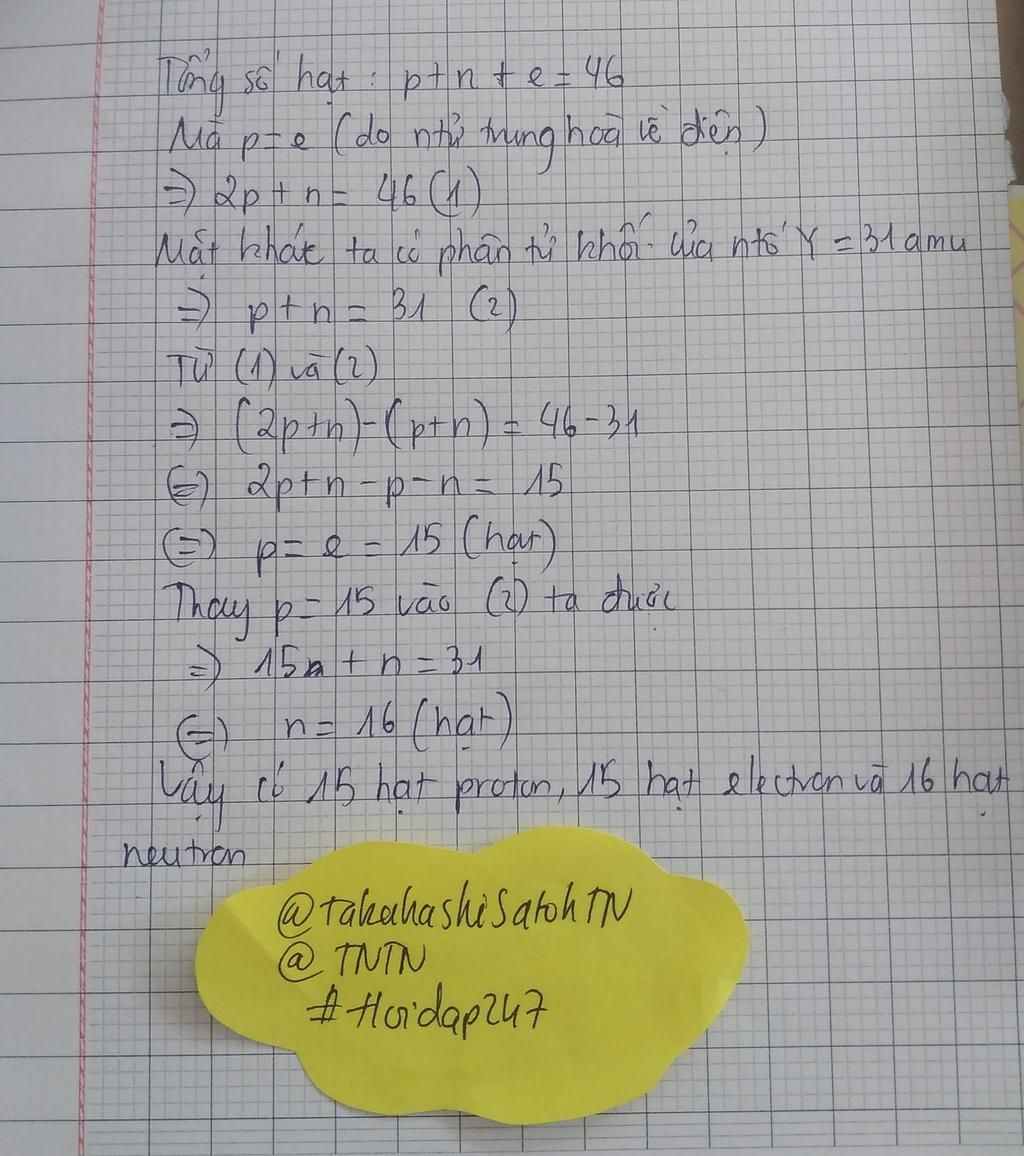 Tổng số hạt: p+n+e=46
Mà p=e (do ntử trung hoà về điện)
=) 2p+n= 46 (1)
Mặt khác ta có phân tử khối của ntố Y = 31 amu
=) p+n= 31 (2)
Từ (1) và (2)
=) (2p+n)-(p+n) = 46-31
(=) 2p+n-p-n= 15
(=) p= e = 15 (hạt)
Thay p=15 vào (2) ta được
=) 15 + n = 31
(=) n= 16 (hạt)
Vậy có 15 hạt proton, 15 hạt electron và 16 hạt
neutron
@takahashiSatohTN
@TNTN
#Hoidap247